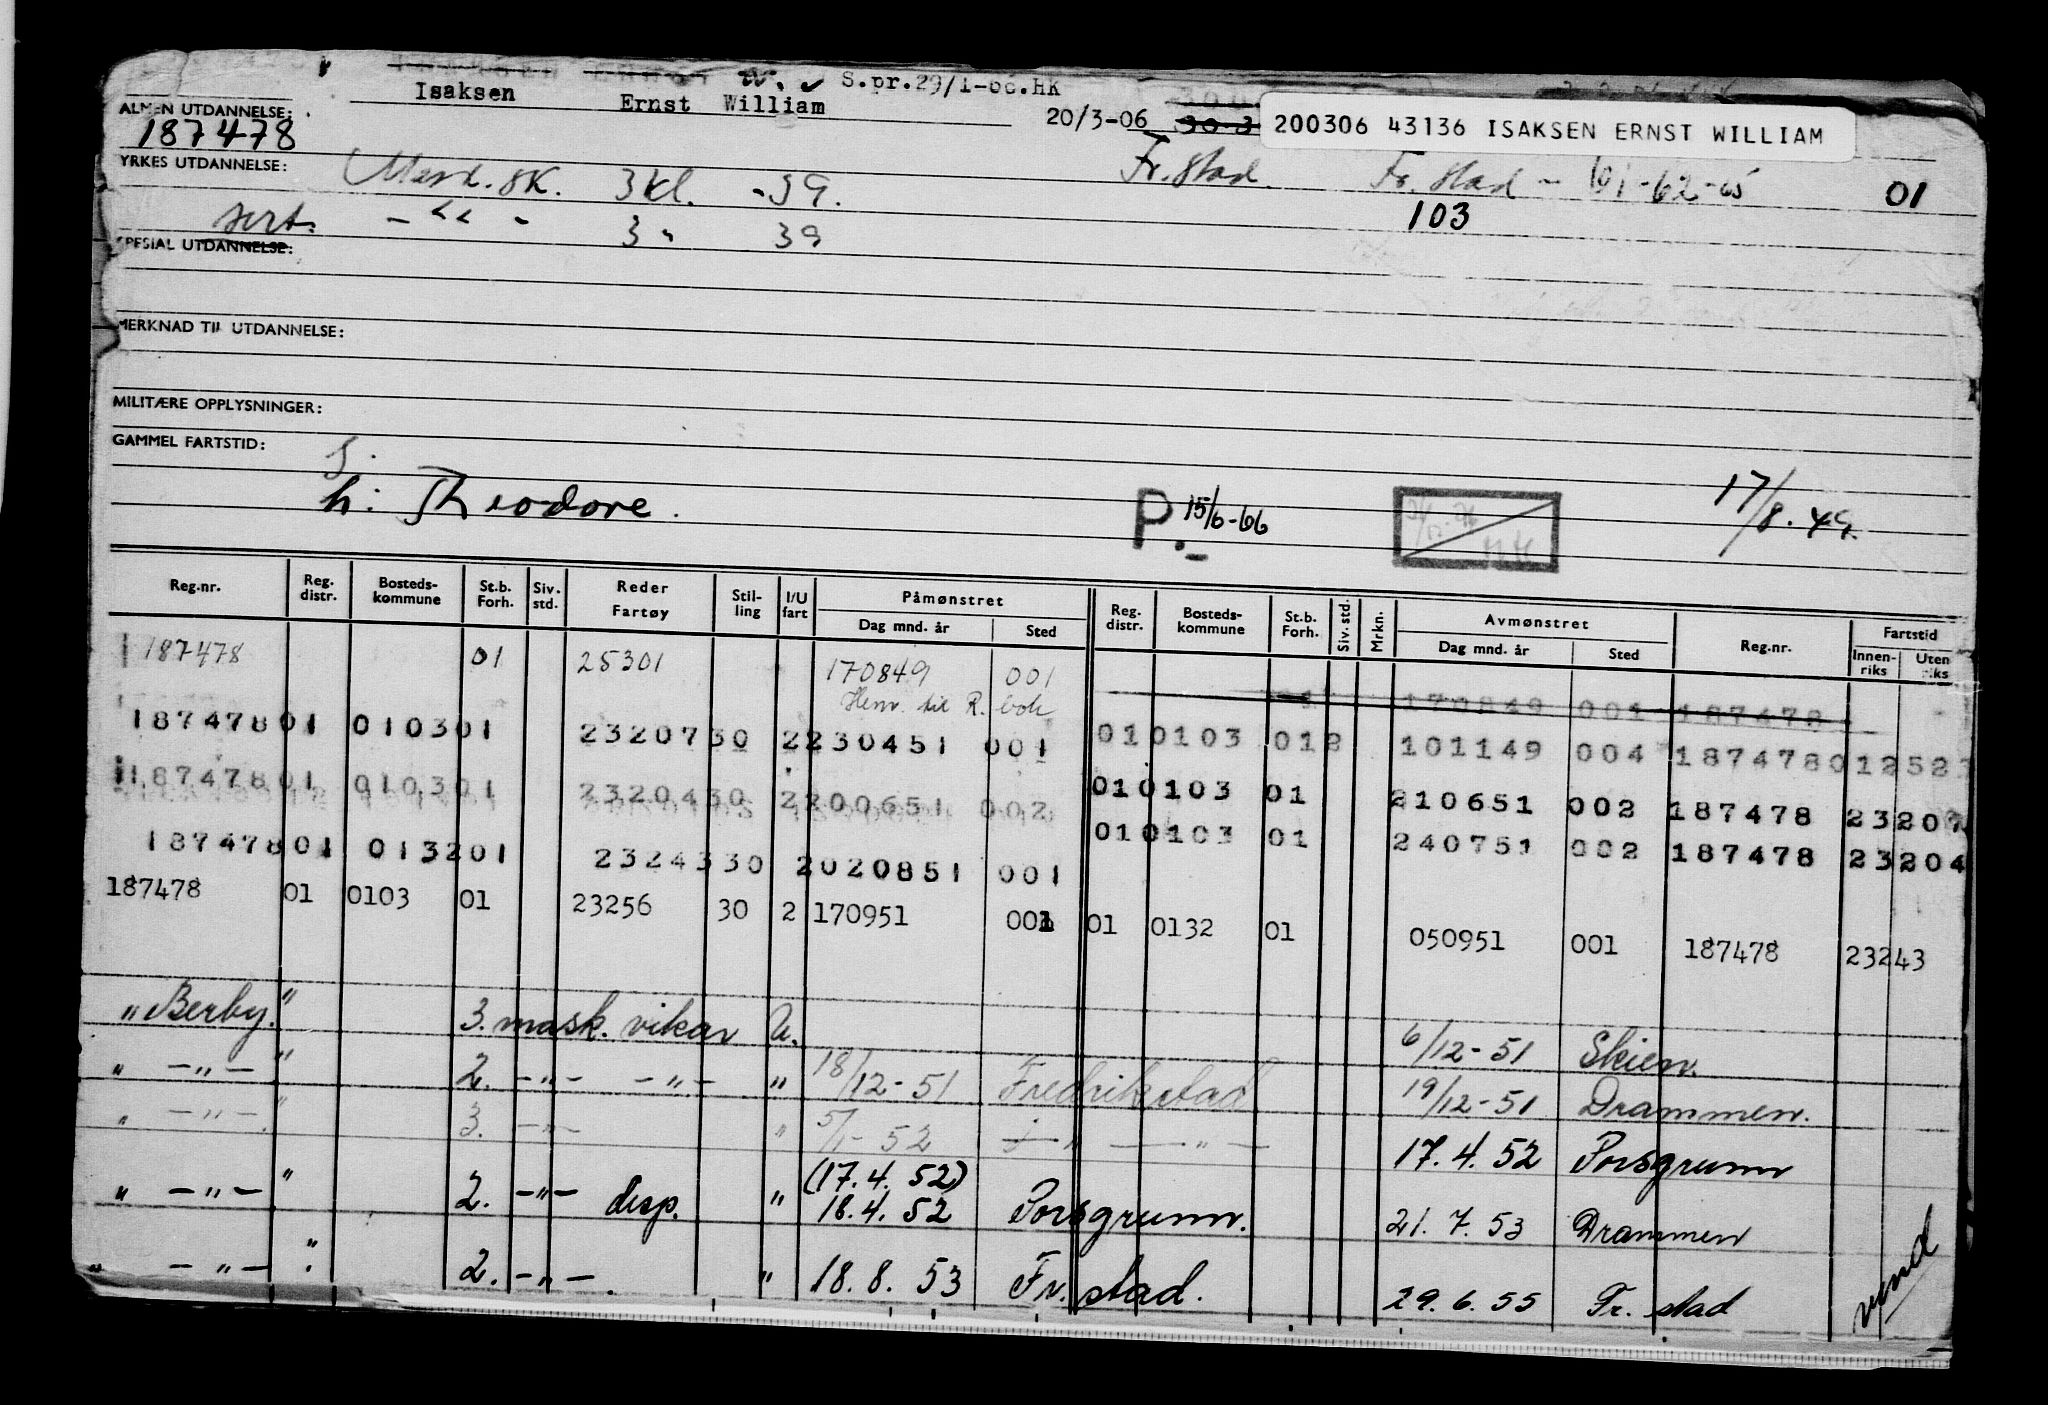 Isaksen Ernst William S.pr.29/1-66.HK
20/3-06
200306 43136 ISAKSEN ERNST WILLIAM
ALMEN UTDANNELSE:
187478
YRKES UTDANNELSE: Mask. sk. 3 kl. -39. Fr.stad. Fr. stad - 61-62-65 01
103
sert. - " - 3 " 39
SPESIAL UTDANNELSE:
MERKNAD TIL UTDANNELSE:
MILITÆRE OPPLYSNINGER:
GAMMEL FARTSTID:
h: Theodore.
P. 15/6-66
17/8.49.
Reg.nr. Reg. distr. Bosteds-kommune St.b. Forh. Siv. std. Reder Fartøy Stil-ling I/U fart Påmønstret Dag mnd. år Sted Reg. distr. Bosteds-kommune St.b. Forh. Siv. std. Mrkn. Avmønstret Dag mnd. år Sted Reg.nr. Fartstid Innen-riks Uten-riks
187478 01 25301 170849 001
Henv. til R. bok
170849 001 187478
18747801 010301 2320730 2230451 001 010103 012 101149 004 18747801252
18747801 010301 2320430 2200651 002 010103 01 210651 002 187478 23207
18747801 013201 2324330 2020851 001 010103 01 240751 002 187478 23204
187478 01 0103 01 23256 30 2 170951 01 0132 01 050951 001 187478 23243
"Berby." 3. mask. vikar U. 6/12-51 Skien.
" -"- " 2. -"- -"- " 18/12-51 Fredrikstad 19/12-51 Drammen.
" -"- " 3. -"- " 5/1-52 -"- 17.4.52 Porsgrunn
(17.4.52)
" -"- " 2. -"- disp. " 18.4.52 Porsgrunn. 21.7.53 Drammen
" -"- " 2. -"-. " 18.8.53 Fr.stad. 29.6.55 Fr.stad
vend